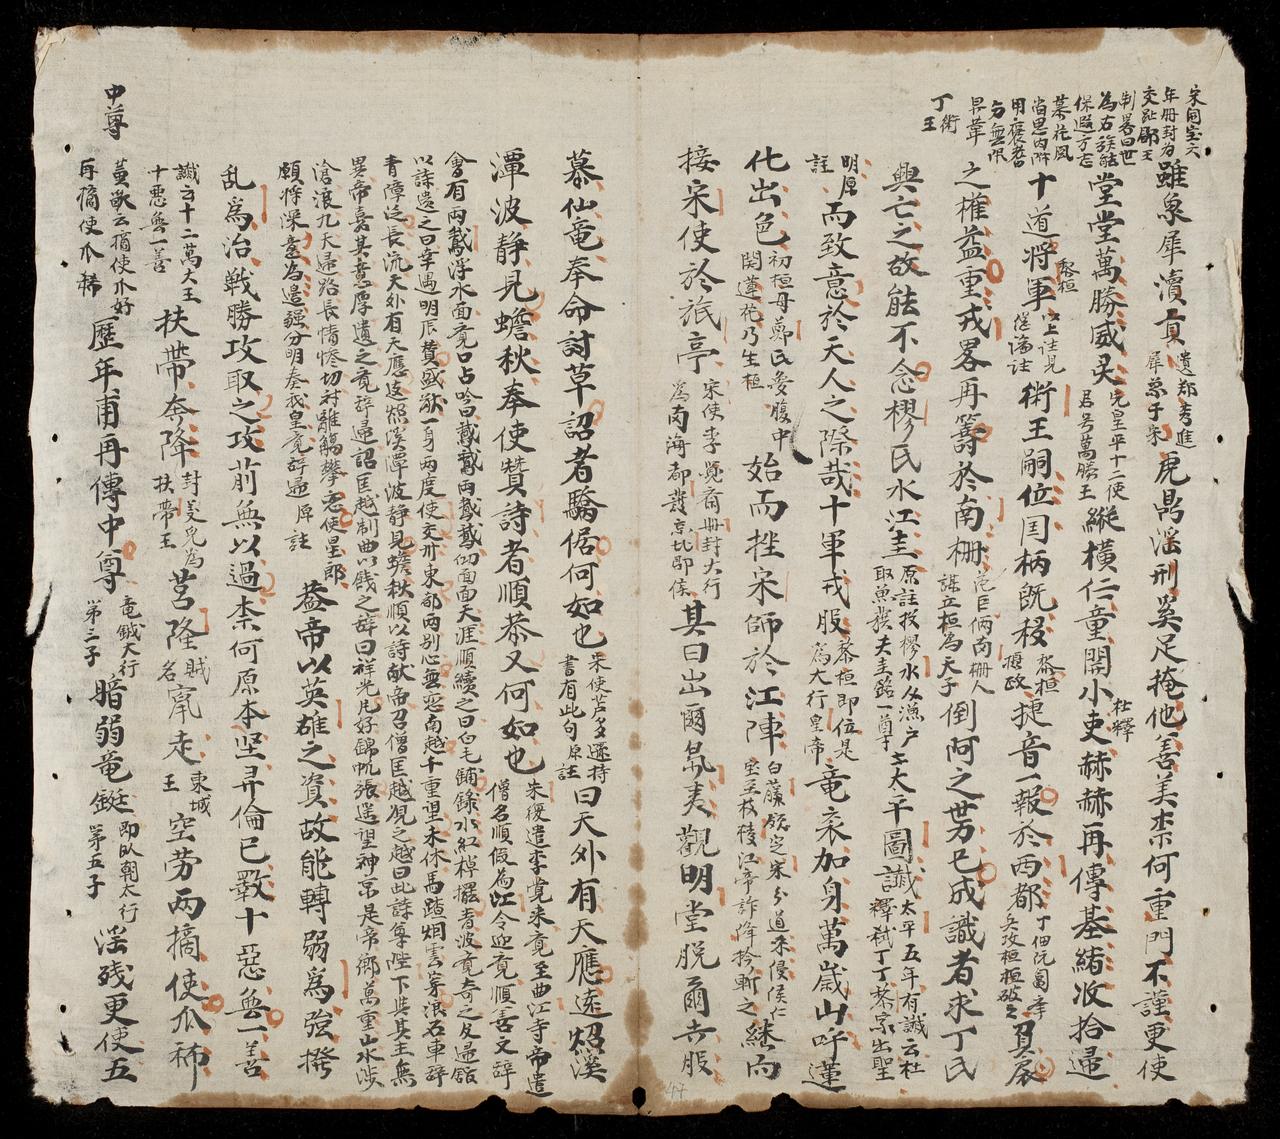 宋開宝六
年冊封為
交趾郡王
制畧曰世
為右族能
保遐方志
慕花風
尚思內附
用褒
方無限
丁術
王
雖象犀瀆貢遺鄭秀進犀象于宋虎鼎淫刑奚足掩他善美柰何重門不謹更使
堂堂萬勝威灵先皇平十二使君号萬勝王縱橫仁童開小吏杜釋赫赫再傳基緒收拾還
十道將軍黎桓以上註見僅論註術王嗣位国柄既移黎桓攝政捷音一報於西都丁佃阮匐李兵攻桓桓破之負扆
之權益重戎畧再籌於南柵范巨俩南柵人謀立桓為天子倒阿之世乃已成識者求丁氏
興亡之故能不念樛民水江圭原註投樛水处漁户取魚獲夫圭銘一尊于太平圖讖太平五年有讖云杜釋弒丁丁黎家出聖
明原註而致意於天人之際哉十軍戎服黎桓即位是為大行皇帝竜衮加身萬歲山呼蓮
化出色初桓母鄭氏夢腹中開蓮花乃生桓始而挫宋師於江陣白藤宋分道來侵侯仁宝至枝稜江帝詐降擒斬之継而
接宋使於旅亭宋使李覺齎冊封大行為南海都護京兆郡侯其曰出爾氛夷觀明堂脫爾卉服
慕仙竜奉命討草詔者驕倨何如也宋使芦多遜持書有此句原註曰天外有天應遠炤溪
潭波静見蟾秋奉使贊詩者順恭又何如也宋復遣李覺來竟至曲江寺帝遣僧名順假為江令迎竟順善文辞
會有両鵞浮水面竟口占吟曰鵞鵞両鵞鵞仰面面天涯順續之曰白毛鋪錄水紅棹擺青波竟奇之及歸館
以詩遺之曰幸遇明辰賛盛猷一身両度使交州東都両别心無恋南越千重望未休馬踏烟雲穿浪石車辞
青障泛長流天外有天應遠炤溪潭波静見蟾秋順以詩献帝召僧匡越覌之越曰此詩尊陛下與其主無
異帝嘉其意厚遺之竟辞歸詔匡越制曲以餞之辞曰祥光風好錦帆張遥望神京是帝鄉萬重山水涉
滄浪九天歸路長情惨切対離觴攀恋使星郎
願將深意為邉疆分明奏我皇竟辞歸原註葢帝以英雄之資故能轉弱為強撥
乱為治戦勝攻取之攻前無以過柰何原本坚尋倫已斁十惡無一善
讖云十二萬大王十惡無一善扶帶奔降封美兒為扶帶王莒隆賊名竄走東城王空劳両摘使瓜稀
中尊
黄歌云摘使瓜好
再摘使瓜稀歷年甫再傳中尊竜鉞大行第三子暗弱竜鋌即臥朝大行第五子淫残更使五
44